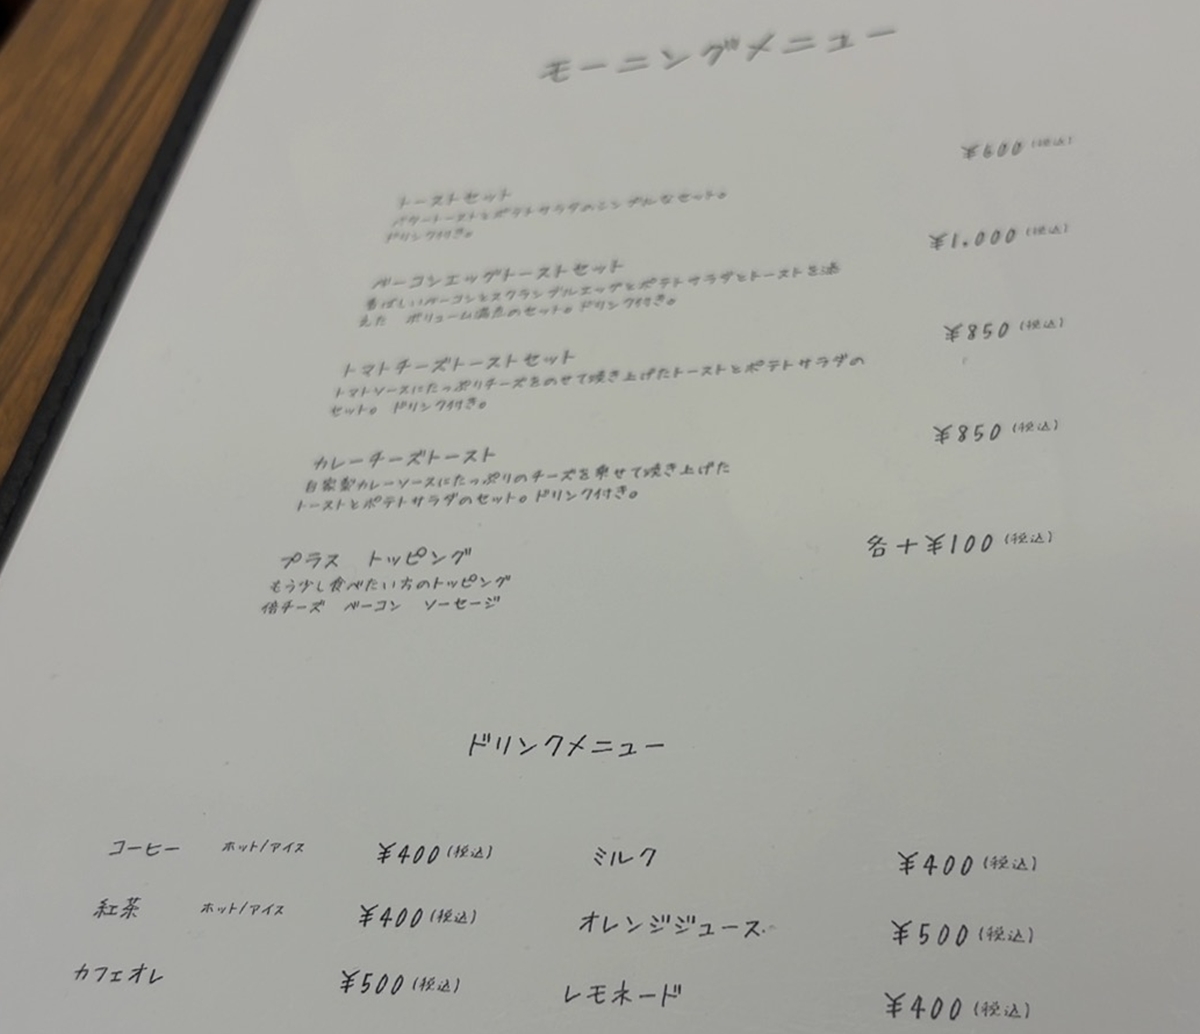 モーニングメニュー
¥600(税込)
トーストセット
バタートーストとポテトサラダのシンプルなセット。
ドリンク付き。
¥1,000(税込)
ベーコンエッグトーストセット
香ばしいベーコンとスクランブルエッグとポテトサラダとトーストを添
えた ボリューム満点のセット。ドリンク付き。
¥850(税込)
トマトチーズトーストセット
トマトソースにたっぷりチーズをのせて焼き上げたトーストとポテトサラダの
セット。 ドリンク付き。
¥850(税込)
カレーチーズトースト
自家製カレーソースにたっぷりのチーズを乗せて焼き上げた
トーストとポテトサラダのセット。ドリンク付き。
各+¥100(税込)
プラス トッピング
もう少し食べたい方のトッピング
倍チーズ ベーコン ソーセージ
ドリンクメニュー
コーヒー ホット/アイス ¥400(税込) ミルク ¥400(税込)
紅茶 ホット/アイス ¥400(税込) オレンジジュース ¥500(税込)
カフェオレ ¥500(税込) レモネード ¥400(税込)